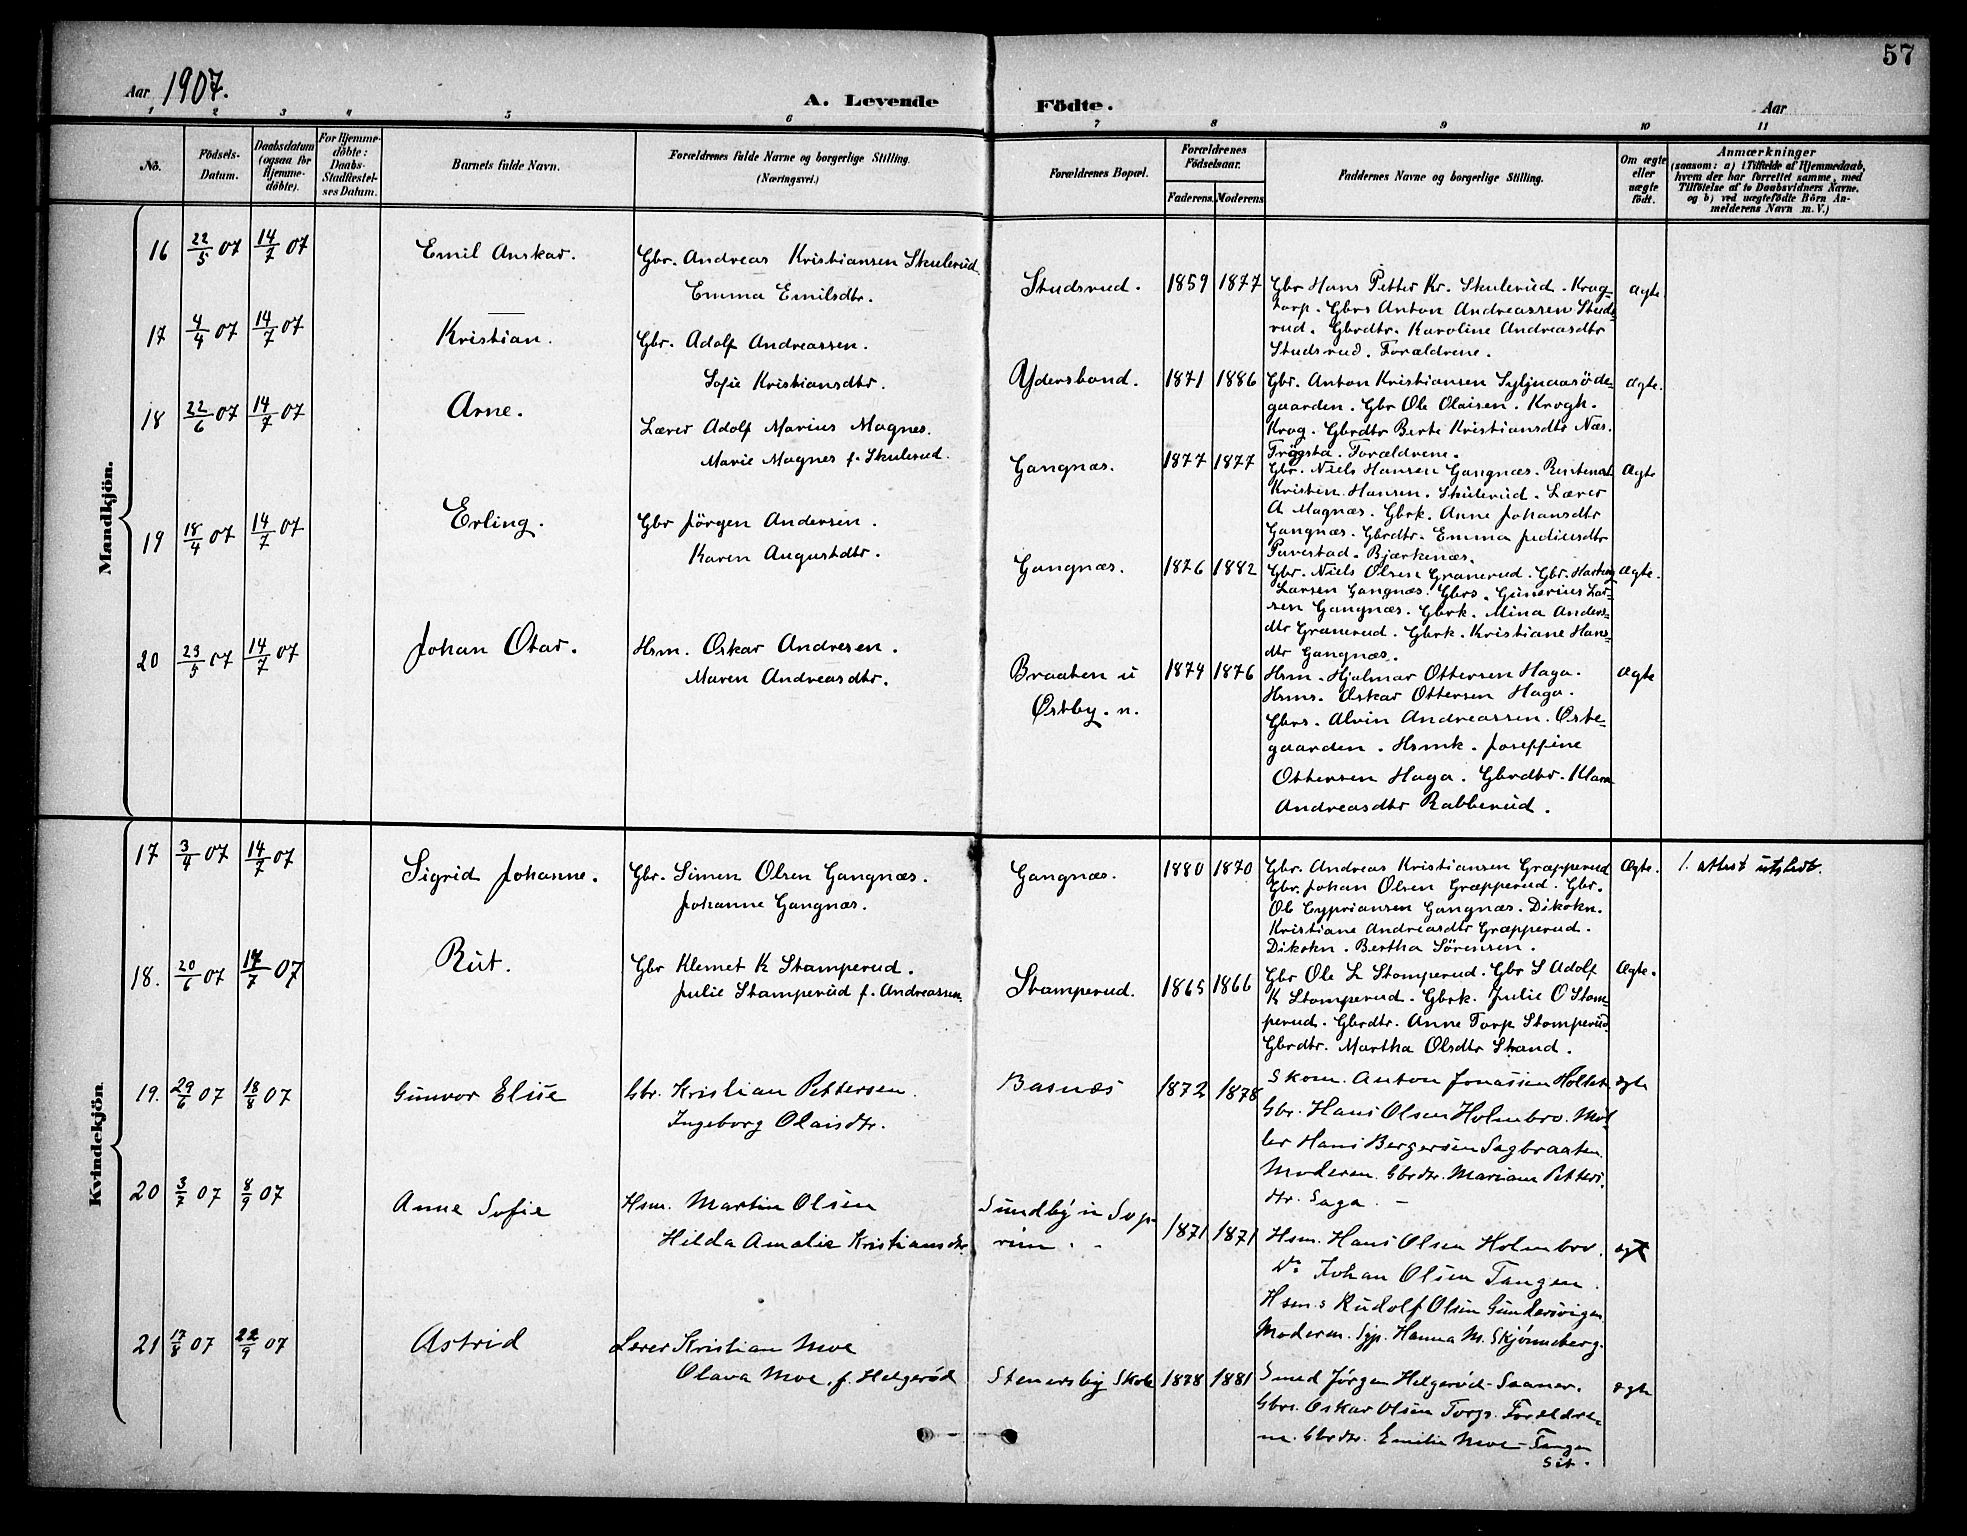 57
Aar 1907.
A. Levende Födte.
Aar
1 2 3 4 5 6 7 8 9 10 11
No.
Födsels-Datum.
Daabsdatum (ogsaa for Hjemme-döbte).
For Hjemme-döbte: Daabs-Stadfæstel-ses Datum.
Barnets fulde Navn.
Forældrenes fulde Navne og borgerlige Stilling.
(Næringsvei.)
Forældrenes Bopæl.
Forældrenes Födselsaar.
Faderens. Moderens
Faddernes Navne og borgerlige Stilling.
Om ægte eller uægte født.
Anmærkninger
(saasom: a) i Tilfælde af Hjemmedaab,
hvem der har forrettet samme, med
Tilföielse af to Daabsvidners Navne.
og b) ved uægtefödte Börn An-
melderens Navn m. V.)
Mandkjön.
16 22/5 07 14/7 07 Emil Anskar.
Gbr. Andreas Kristiansen Skulerud
Emma Emilsdtr.
Studsrud. 1859 1877
Gbr Hans Petter Kr. Skulerud. Krog-
torp. Gbrs Anton Andreassen Studs-
rud. Gbrdtr. Karoline Andreasdtr
Studsrud. Forældrene.
ægte.
17 4/4 07 14/7 07 Kristian.
Gbr. Adolf Andreassen.
Sofie Kristiansdtr.
Ydersbond. 1871 1886
Gbr. Anton Kristiansen
gaarden. Gbr Ole Olaisen. Krogh.
Krog. Gbrdtr Berte Kristiansdtr Næs.
Trøgsta. Forældrene.
ægte.
18 22/6 07 14/7 07 Arne.
Lærer Adolf Marius Magnes.
Marie Magnes f. Skulerud.
Gangnæs. 1877 1877
Gbr. Niels Hansen Gangnæs.
Kristen Hansen. Skulerud. Lærer
A Magnæs. Gbrk. Anne Johansdtr
Gangnæs. Gbrdtr. Emma Juliusdtr
Bjærkenæs.
Ægte
19 18/4 07 14/7 07 Erling.
Gbr Jörgen Andersen.
Karen Augustdtr.
Gangnæs. 1876 1882
Gbr. Niels Olsen Granerud. Gbr.
Larsen Gangnæs. Gbrs. Gunerius Lar-
sen Gangnæs. Gbrk. Mina Anders-
dtr Granerud. Gbrk. Kristiane Hans-
dtr Gangnæs.
ægte.
20 23/5 07 14/7 07 Johan Otar.
Hsm. Oskar Andresen.
Maren Andreasdtr.
Braaten u
Østby. n.
1874 1876
Hsm. Hjalmar Ottersen Haga.
Hsms. Oskar Ottersen Haga.
Gbrs. Alvin Andreassen. Øste-
gaarden. Hsmk. Joseffine
Ottersen Haga. Gbrdtr. Klara
Andreasdtr Rabberud.
Ægte
Kvindekjön
17 3/4 07 14/7 07 Sigrid Johanne.
Gbr. Simen Olsen Gangnæs.
Johanne Gangnæs.
Gangnæs. 1880 1870
Gbr. Andreas Kristiansen Græpperud
Gbr. Johan Olsen Græpperud. Gbr.
Ole Cypriansen Gangnæs. Dikokn.
Kristiane Andreasdtr Græpperud.
Dikokn. Bertha Sørensen.
Ægte. 1. attest utstedt.
18. 20/6 07 14/7 07 Rut.
Gbr Klemet K Stamperud.
Julie Stamperud f. Andreassen
Stamperud. 1865 1866
Gbr Ole L Stomperud. Gbr S Adolf
K Stomperud. Gbrk. Julie O Stom-
perud. Gbrdtr. Anne Torp Stomperud
Gbrdtr. Martha Olsdtr Strand.
Ægte.
19. 29/6 07 18/8 07 Gunvor Elise
Gbr. Kristian Pettersen.
Ingeborg Olaisdtr.
Basnæs 1872 1878
Skom. Anton Jonassen Holtet
Gbr. Hans Olsen Holmbro. Möl-
ler Hans Bergersen Sagbraaten.
Moderen. Gbrdtr. Mariane Petters-
dtr. Saga. -
ægte
20 3/7 07 8/9 07 Anne Sofie
Hsm. Martin Olsen
Hilda Amalie Kristiansdtr
Sundby u Sop-
rim.
1871 1871
Hsm. Hans Olsen Holmbro.
Do Johan Olsen Tangen.
Hsm.s Rudolf Olsen Gundersvigen
Moderen. Syp. Hanna M. Skjønneberg.
ægte
21 17/8 07 22/9 07 Astrid
Lærer Kristian Moe
Olava Moe, f. Helgerød
Stenersby Skole 1878 1881
Smed Jørgen Helgerød - Saaner.
Gbrs. Oskar Olsen Torp. Forældre-
ne. Gbrdtr. Emilie Moe - Tangen
Sit.
ægte